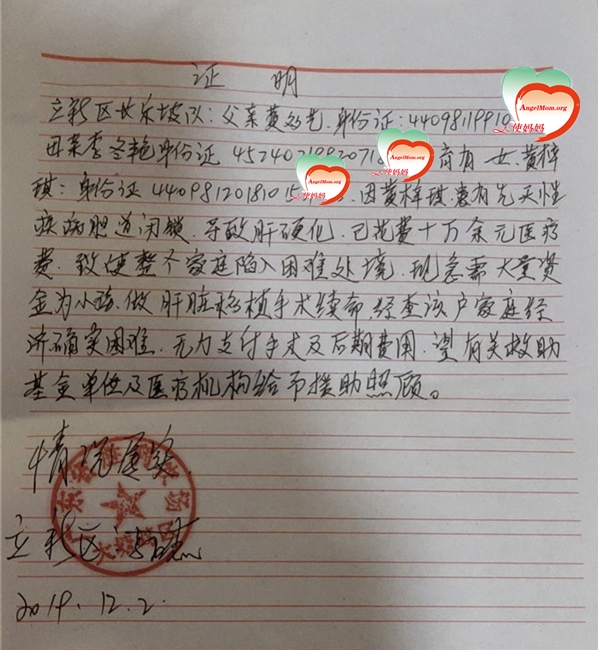 证 明
立新区长乐坡队:父亲黄 身份证:44098119910
AngelMom.org
天使妈妈
母亲李冬艳身份证 4524021992071
AngelMom.org
育有一女.黄梓
琪:身份证 44098120181015
AngelMom.org
天使妈妈
.因黄梓琪患有先天性
疾病胆道闭锁.导致肝硬化.已花费十万余元医疗
费.致使整个家庭陷入困难处境.现急需大量资
金为小孩.做肝脏移植手术续命 经查该户家庭经
济确实困难.无力支付手术及后期费用.望有关救助
基金单位及医疗机构给予援助照顾。
情况属实
立新区
2019.12.2.